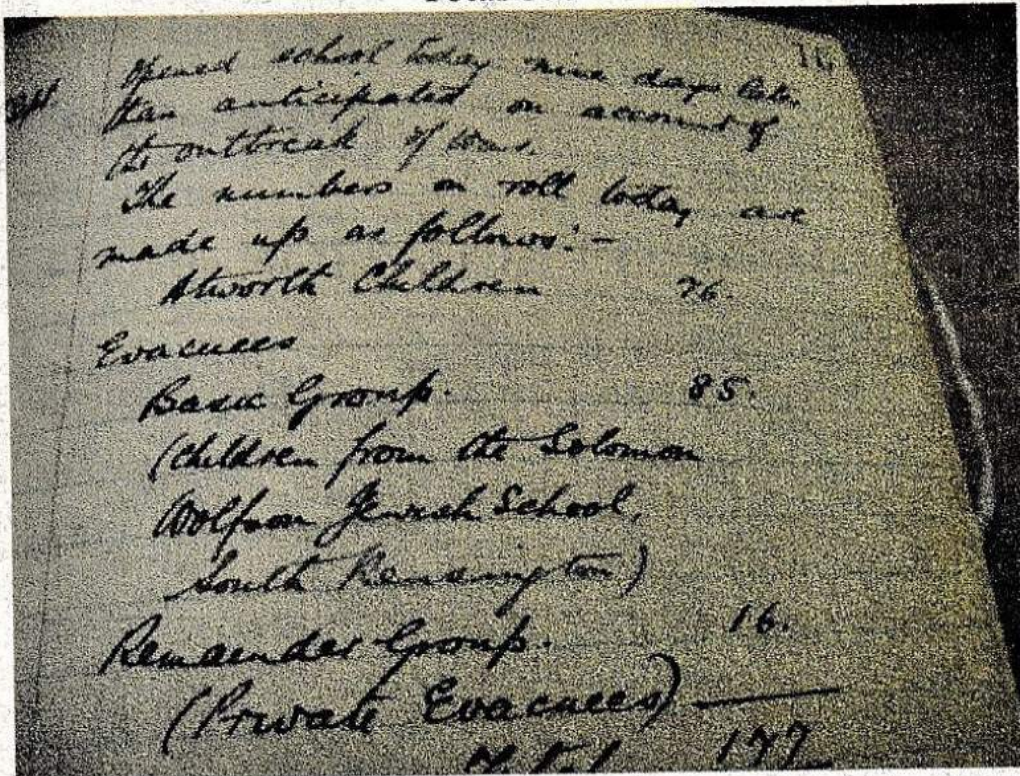 16
opened school today nine days later
than anticipated on account of
the outbreak of war.
The numbers on roll today are
made up as follows:-
Atworth Children 76.
Evacuees
Basic Group. 85.
(Children from the Solomon
Wolfson Jewish School,
South Kensington)
Remainder Group. 16.
(Private Evacuees)
Total 177